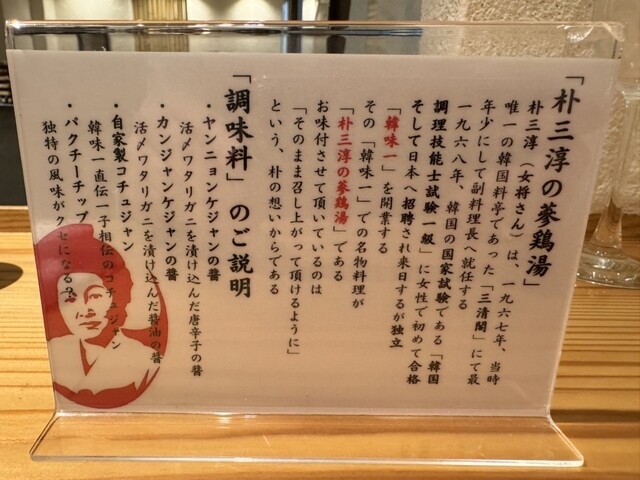 「朴三淳の蔘鶏湯」
朴三淳（女将さん）は、一九六七年、当時
唯一の韓国料亭であった「三清閣」にて最
年少にして副料理長へ就任する
一九六八年、韓国の国家試験である「韓国
調理技能士試験一級」に女性で初めて合格
そして日本へ招聘され来日するが独立
「韓味一」を開業する
その「韓味一」での名物料理が
「朴三淳の蔘鶏湯」である
お味付させて頂いているのは
「そのまま召し上がって頂けるように」
という、朴の想いからである
「調味料」のご説明
・ヤンニョンケジャンの醤
活〆ワタリガニを漬け込んだ唐辛子の醤
・カンジャンケジャンの醤
活〆ワタリガニを漬け込んだ醤油の醤
・自家製コチュジャン
韓味一直伝一子相伝のコチュジャン
・パクチーチップ
独特の風味がクセになる？